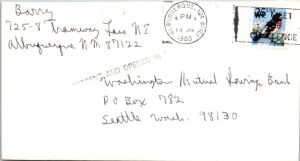 Barry
725-8 Tramway Lane NE
Albuquerque NM 87122
ALBUQUERQUE, NM
PM
JAN
1989
AND OPENED IN
Washington Mutual Savings Bank
PO Box 782
Seattle Wash. 98130